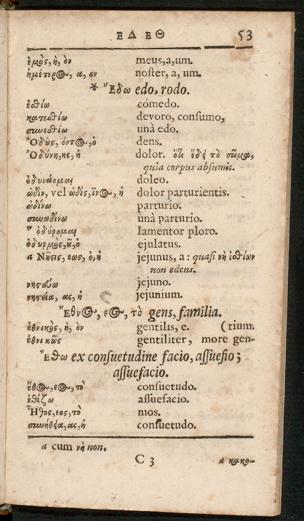 ΕΔ ΕΘ 53
ἐμὸς, ἡ, ὸν meus, a, um.
ἡμέτερος, α, ον noster, a, um.
* Ἔδω edo, rodo.
ἐσθίω cómedo.
κατεσθίω devoro, consumo,
συνεσθίω unà edo.
Ὀδοὺς, όντος, ὁ dens.
Ὀδύνη, ης, ἡ dolor. ὅτι ἔδῃ τὸ σῶμα,
quia corpus absumit.
ὀδυνάομαι doleo.
ὠδὶν, vel ὠδὶς, ῖνος, ἡ dolor parturientis.
ὠδίνω parturio.
συνωδίνω unà parturio.
ὀδύρομαι lamentor ploro.
ὀδυρμὸς, οῦ, ὁ ejulatus.
a Νῆςις, εως, ὁ, ἡ jejunus, a: quasi νὴ ἐσθίων
non edens.
νηστεύω jejuno.
νηστεία, ας, ἡ jejunium.
Ἔθνος, εος, τὸ gens, familia.
ἐθνικὸς, ἡ, ὸν gentilis, e. (tium.
ἐθνικῶς gentiliter, more gen-
Ἔθω ex consuetudine facio, assuesio;
assuefacio.
ἔθος, εος, τὸ consuetudo.
ἐθίζω assuefacio.
Ἦθος, εος, τὸ mos.
συνήθεια, ας, ἡ consuetudo.
a cum νὴ non.
C 3 a κακο-